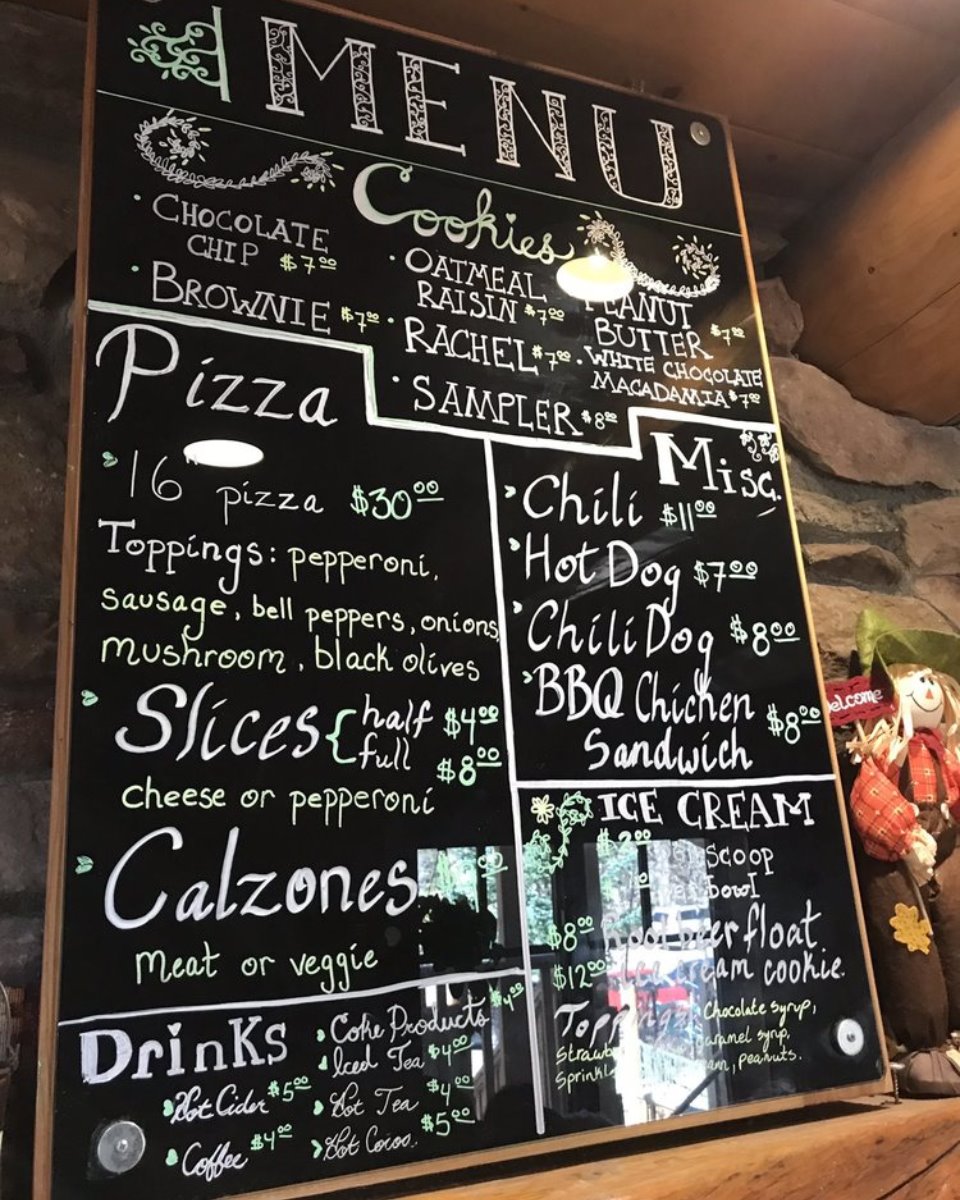 MENU
Cookies
• CHOCOLATE
CHIP $7.00
• BROWNIE $7.00
• OATMEAL
RAISIN $7.00
• RACHEL $7.00
• SAMPLER $8.00
PEANUT
BUTTER $7.00
• WHITE CHOCOLATE
MACADAMIA $7.00
Pizza
16" pizza $30.00
Toppings: pepperoni,
sausage, bell peppers, onions,
mushroom, black olives
Slices { half $4.00
full $8.00
cheese or pepperoni
Calzones
meat or veggie
Misc.
Chili $11.00
Hot Dog $7.00
Chili Dog $8.00
BBQ Chicken
Sandwich $8.00
ICE CREAM
scoop
bowl
$8.00 root beer float
$12.00 cream cookie.
Toppings: Chocolate syrup,
caramel syrup,
peanuts.
Drinks
Coke Products $4.00
Iced Tea $4.00
Hot Cider $5.00
Hot Tea $4.00
Coffee $4.00
Hot Cocoa. $5.00
welcome